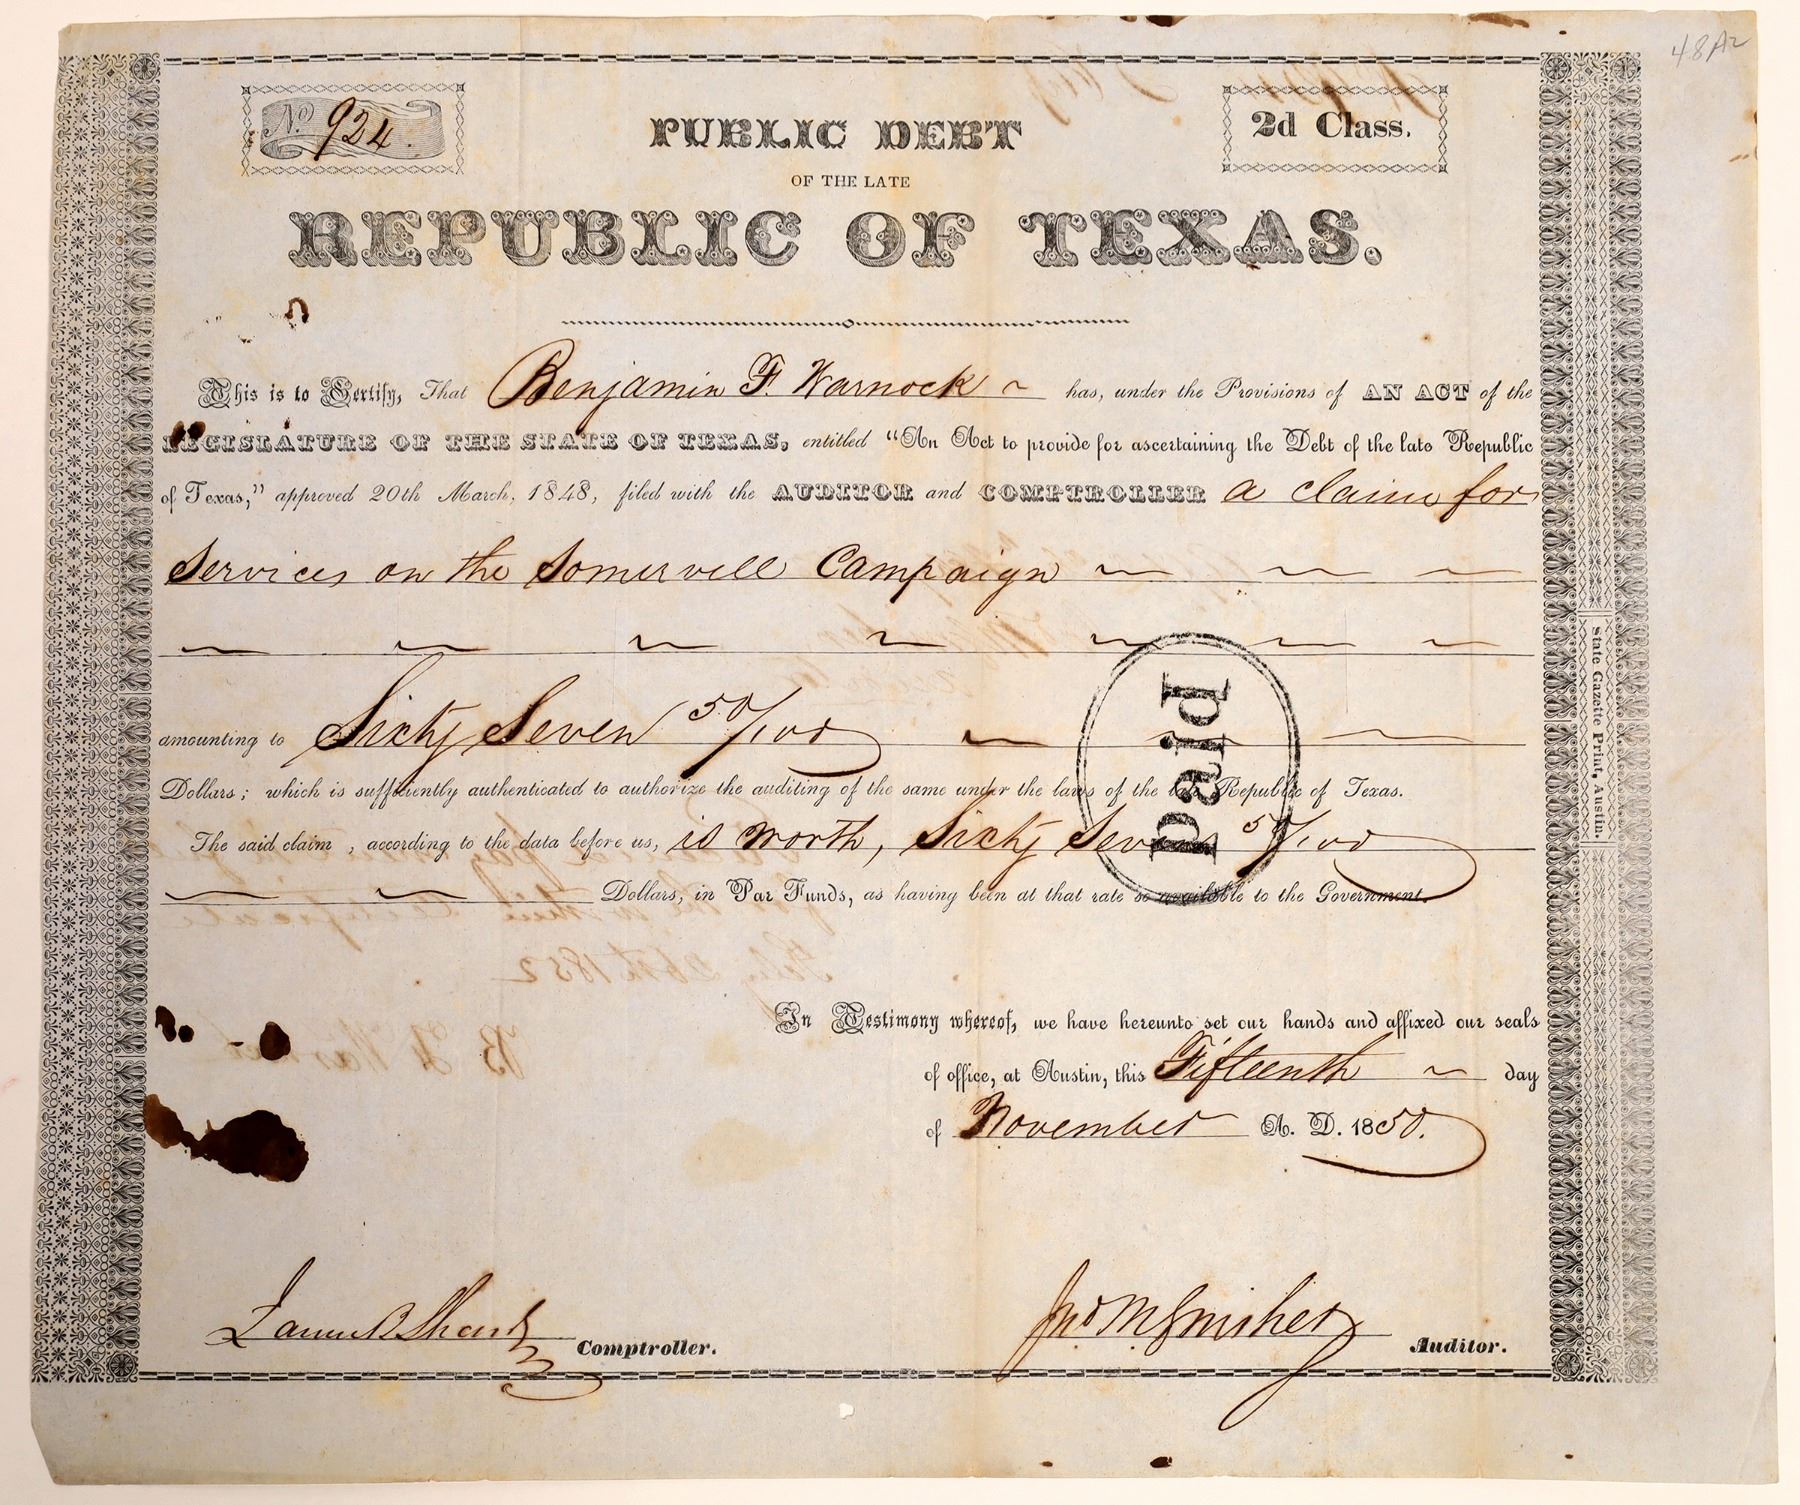 48A2
No. 924.
2d Class.
PUBLIC DEBT
OF THE LATE
REPUBLIC OF TEXAS.
This is to Certify, That Benjamin F. Warnock has, under the Provisions of AN ACT of the
LEGISLATURE OF THE STATE OF TEXAS, entitled "An Act to provide for ascertaining the Debt of the late Republic
of Texas," approved 20th March, 1848, filed with the AUDITOR and COMPTROLLER a claim for
Services on the Somervell Campaign
amounting to Sixty Seven 50/100
Dollars; which is sufficiently authenticated to authorize the auditing of the same under the laws of the late Republic of Texas.
The said claim, according to the data before us, is worth, Sixty Seven 50/100
Dollars, in Par Funds, as having been at that rate so available to the Government.
Paid
In Testimony whereof, we have hereunto set our hands and affixed our seals
of office, at Austin, this Fifteenth day
of November A. D. 1850.
James B Shaw Comptroller.
Jno M Swisher Auditor.
State Gazette Print, Austin.
Feby 26th 1852